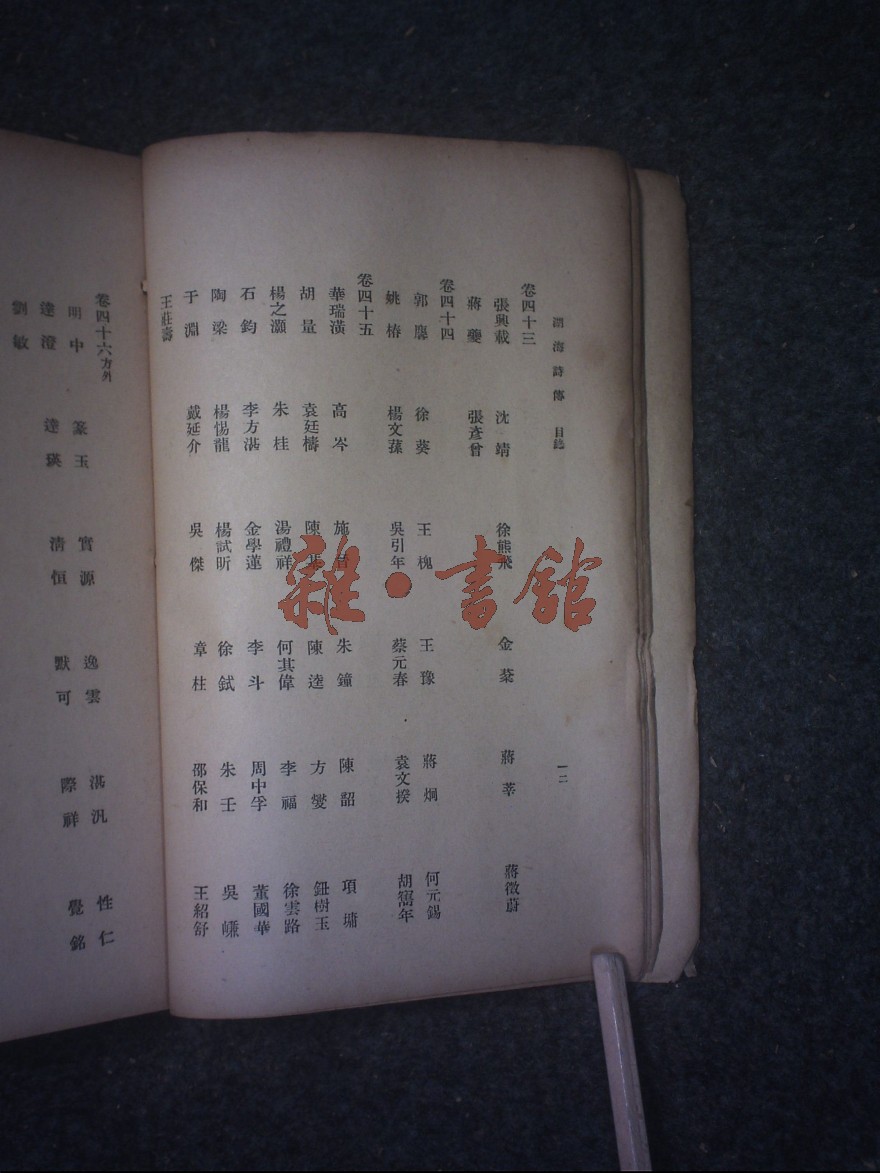 湖海詩傳 目錄 一二
卷四十三
張興載 沈靖 徐熊飛 金棻 蔣莘 蔣徵蔚
蔣夔 張彥曾
卷四十四
郭麐 徐葵 王槐 王豫 蔣炯 何元錫
姚椿 楊文蓀 吳引年 蔡元春 袁文揆 胡
卷四十五
華瑞潢 高岑 施 朱鐘 陳韶 項墉
胡量 袁廷檮 陳 陳逵 方燮 鈕樹玉
楊之灝 朱桂 湯禮祥 何其偉 李福 徐雲路
石鈞 李方湛 金學蓮 李斗 周中孚 董國華
陶梁 楊惕龍 楊試昕 徐鉽 朱壬 吳嵰
于淵 戴延介 吳傑 章柱 邵保和 王紹舒
王莊壽
卷四十六方外
明中 篆玉 實源 逸雲 湛汎 性仁
達澄 達瑛 清恒 默可 際祥 覺銘
劉敏
雜·書館